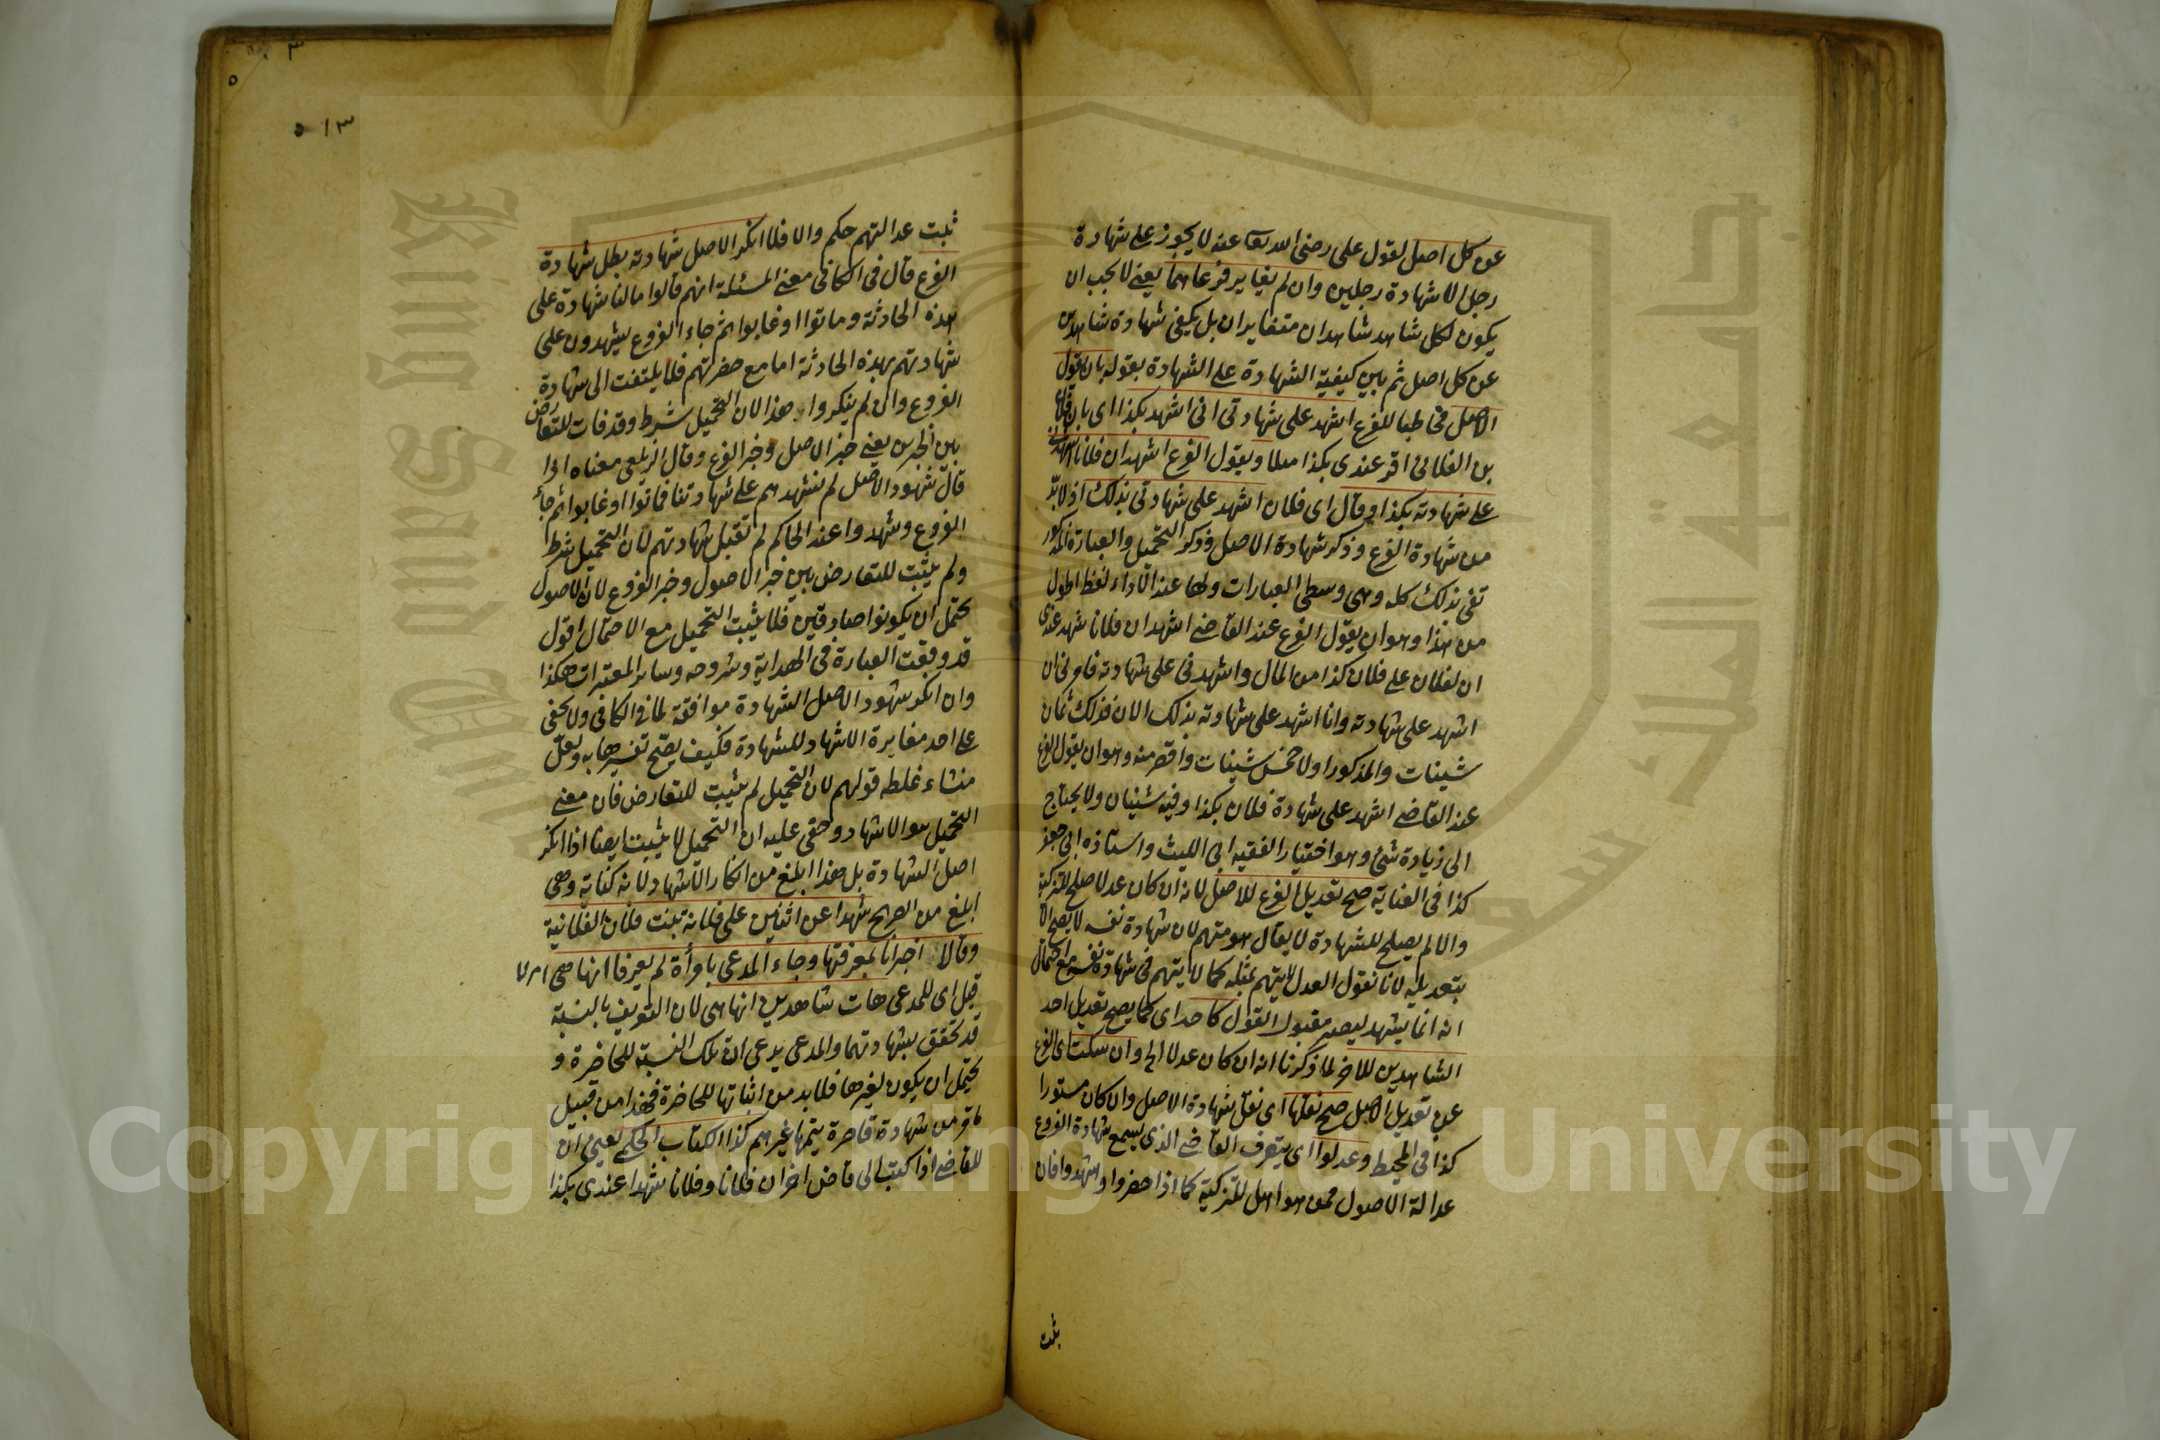 عن كل اصل لقول على رضى الله تعا عنه لا يجوز على شهادة
رجل الا شهادة رجلين وان لم يغاير فرعاهما يعنى لا يجب ان
يكون لكل شاهد شاهدان متغايران بل يكفى شهادة شاهدين
عن كل اصل ثم بين كيفية الشهادة على الشهادة بقوله بان يقول
الاصل مخاطبا للفرع اشهد على شهادتى انى اشهد بكذا اى بان فلان
بن الفلانى اقر عندى بكذا مثلا ويقول الفرع اشهد ان فلانا اشهدنى
على شهادته بكذا وقال اى فلان اشهد على شهادتى بذلك اذ لا بد
من شهادة الفرع وذكر شهادة الاصل وذكر التحميل والعبارة المذكور
تفى بذلك كله وهى وسطى العبارات ولها عند الاداء لفظ اطول
من هذا وهو ان يقول الفرع عند القاضى اشهد ان فلانا شهد عندى
ان لفلان على فلان كذا من المال واشهدنى على شهادته فامرنى ان
اشهد على شهادته وانا اشهد على شهادته بذلك الان فذلك ثمان
شينات والمذكور اولا خمس شينات واقصر منه وهو ان يقول الفرع
عند القاضى اشهد على شهادة فلان بكذا وفيه شينان ولا يحتاج
الى زيادة شئ وهو اختيار الفقيه ابى الليث واستاذه ابى جعفر
كذا فى العناية صح تعديل الفرع للاصل لانه ان كان عدلا صلح للتزكية
والا لم يصلح للشهادة لا يقال هو متهم لان شهادة نفسه لا يصح الا
بتعديله لانا نقول العدل لا يتهم بمثله كما لا يتهم فى شهادة نفسه مع احتمال
انه انما يشهد ليصير مقبول القول كاحد اى كما يصح تعديل احد
الشاهدين للاخر لما ذكرنا انه ان كان عدلا الخ وان سكت اى الفرع
عن تعديل الاصل صح نقلها اى نقل شهادة الاصل وان كان مستورا
كذا فى المحيط وعدلوا اى يتعرف القاضى الذى يسمع شهادة الفروع
عدالة الاصول ممن هو اهل للتزكية كما اذا حضروا واشهدوا فان
ثبت
٥١٣
ثبت عدالتهم حكم والا فلا انكر الاصل شهادته بطل شهادة
الفرع قال فى الكافى معنى المسئلة انهم قالوا مالنا شهادة على
هذه الحادثة وماتوا او غابوا ثم جاء الفروع يشهدون على
شهادتهم بهذه الحادثة اما مع حضرتهم فلا يلتفت الى شهادة
الفروع وان لم ينكروا وهذا لان التحميل شرط وقد فات للتعارض
بين الخبرين يعنى خبر الاصل وخبر الفرع وقال الزيلعى معناه اذا
قال شهود الاصل لم نشهدهم على شهادتنا فماتوا او غابوا ثم جاء
الفروع وشهدوا عند الحاكم لم تقبل شهادتهم لان التحميل شرط
ولم يثبت للتعارض بين خبر الاصول وخبر الفروع لان الاصول
يحتمل ان يكونوا صادقين فلا يثبت التحميل مع الاحتمال اقول
قد وقعت العبارة فى الهداية وشروحه وساير المعتبرات هكذا
وان انكر شهود الاصل الشهادة موافقة لما فى الكافى ولا يخفى
على احد مغايرة الاشهاد للشهادة فكيف يصح تفسيرها به ولعل
منشاء غلطه قولهم لان التحميل لم يثبت للتعارض فان معنى
التحميل هو الاشهاد وخفى عليه ان التحميل لا يثبت ايضا اذا انكر
اصل الشهادة بل هذا ابلغ من انكار الاشهاد لانه كناية وهى
ابلغ من الصريح شهدا عن اثنين على فلانة بنت فلان الفلانية
وقالا اخبرانا بمعرفتها وجاء المدعى بامرأة لم يعرفا انها هى ام لا
قيل اى للمدعى هات شاهدين انها هى لان التعريف بالنسبة
قد تحقق بشهادتهما والمدعى يدعى ان تلك النسبة للحاضرة و
يحتمل ان يكون لغيرها فلا بد من اثباتها للحاضرة فهذا من قبيل
ما مر من شهادة قاصرة يتمها غيرهم كذا الكتاب الحكمى يعنى ان
القاضى اذا كتب الى قاض اخر ان فلانا وفلانا شهدا عندى بكذا